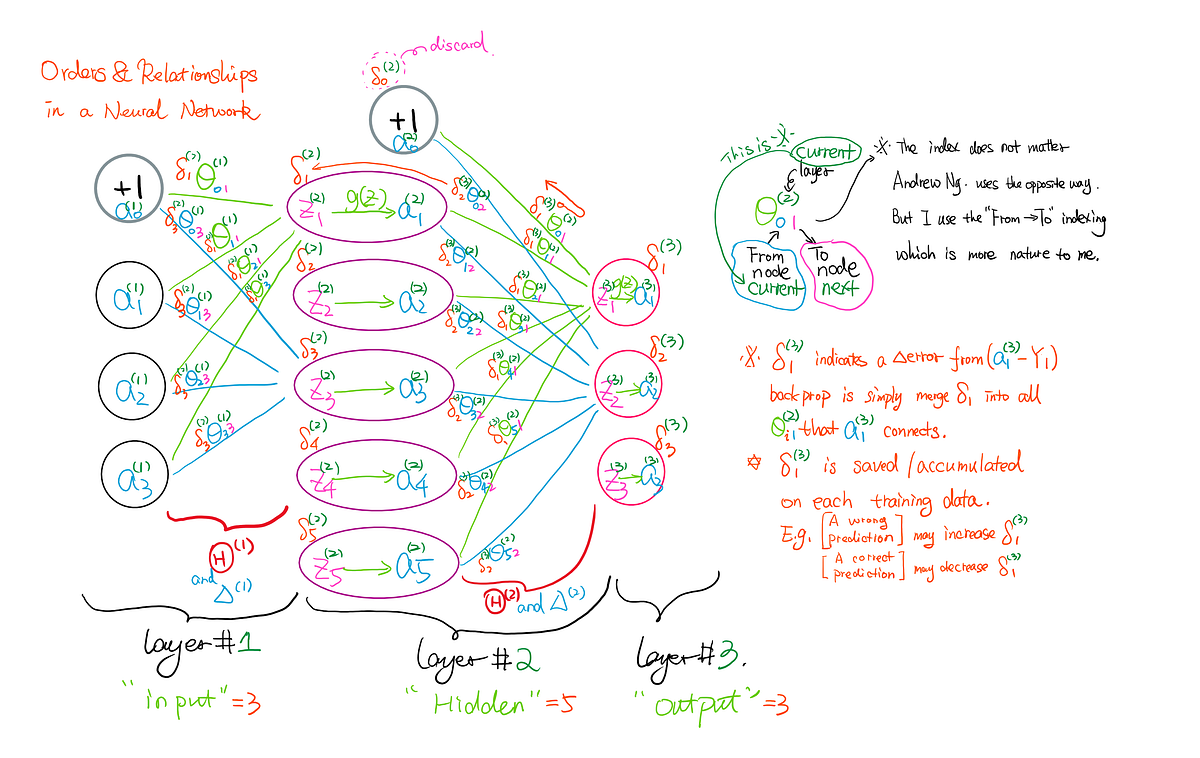 Orders & Relationships
in a Neural Network
discard.
δ₀⁽²⁾
+1
a₀⁽²⁾
+1
a₀⁽¹⁾
a₁⁽¹⁾
a₂⁽¹⁾
a₃⁽¹⁾
δ₁⁽²⁾θ₀₁⁽¹⁾
δ₃⁽²⁾θ₀₃⁽¹⁾
δ₁⁽²⁾θ₁₁⁽¹⁾
δ₁⁽²⁾θ₂₁⁽¹⁾
δ₃⁽²⁾θ₁₃⁽¹⁾
δ₃⁽²⁾θ₂₃⁽¹⁾
δ₁⁽²⁾
z₁⁽²⁾ g(z) a₁⁽²⁾
δ₂⁽²⁾
z₂⁽²⁾ a₂⁽²⁾
δ₃⁽²⁾
z₃⁽²⁾ a₃⁽²⁾
δ₄⁽²⁾
z₄⁽²⁾ a₄⁽²⁾
δ₅⁽²⁾
z₅⁽²⁾ a₅⁽²⁾
δ₂⁽³⁾θ₀₂⁽²⁾
δ₁⁽³⁾θ₀₁⁽²⁾
δ₁⁽³⁾θ₁₁⁽²⁾
δ₂⁽³⁾θ₁₂⁽²⁾
δ₁⁽³⁾θ₂₁⁽²⁾
δ₂⁽³⁾θ₂₂⁽²⁾
δ₁⁽³⁾θ₃₁⁽²⁾
δ₁⁽³⁾θ₄₁⁽²⁾
δ₂⁽³⁾θ₃₂⁽²⁾
δ₁⁽³⁾θ₅₁⁽²⁾
δ₂⁽³⁾θ₄₂⁽²⁾
δ₂⁽³⁾θ₅₂⁽²⁾
δ₁⁽³⁾
z₁⁽³⁾ g(z) a₁⁽³⁾
δ₂⁽³⁾
z₂⁽³⁾ a₂⁽³⁾
δ₃⁽³⁾
z₃⁽³⁾ a₃⁽³⁾
Θ⁽¹⁾
and
Δ⁽¹⁾
Θ⁽²⁾ and Δ⁽²⁾
layer#1
"input"=3
layer#2
"Hidden"=5
layer#3.
"output"=3
This is ※
current
layer
θ₀₁⁽²⁾
From
node
current
To
node
next
※ The index does not matter
Andrew Ng. uses the opposite way.
But I use the "From→To" indexing
which is more nature to me.
※ δ₁⁽³⁾ indicates a Δerror from (a₁⁽³⁾ - Y₁)
backprop is simply merge δ₁ into all
θᵢ₁⁽²⁾ that a₁⁽³⁾ connects.
✡ δ₁⁽³⁾ is saved/accumulated
on each training data.
E.g. [A wrong prediction] may increase δ₁⁽³⁾
[A correct prediction] may decrease δ₁⁽³⁾